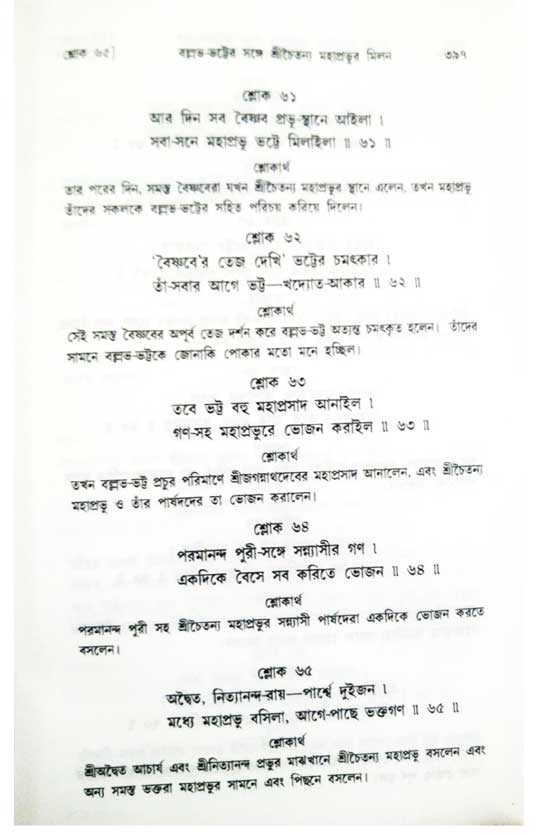 শ্লোক ৬৫] বল্লভ-ভট্টের সঙ্গে শ্রীচৈতন্য মহাপ্রভুর মিলন ৩৯৭
শ্লোক ৬১
আর দিন সব বৈষ্ণব প্রভু-স্থানে আইলা ।
সবা-সনে মহাপ্রভু ভট্টে মিলাইলা ॥ ৬১ ॥
শ্লোকার্থ
তার পরের দিন, সমস্ত বৈষ্ণবেরা যখন শ্রীচৈতন্য মহাপ্রভুর স্থানে এলেন, তখন মহাপ্রভু
তাঁদের সকলকে বল্লভ-ভট্টের সহিত পরিচয় করিয়ে দিলেন।
শ্লোক ৬২
'বৈষ্ণবে'র তেজ দেখি' ভট্টের চমৎকার ।
তাঁ-সবার আগে ভট্ট—খদ্যোত-আকার ॥ ৬২ ॥
শ্লোকার্থ
সেই সমস্ত বৈষ্ণবের অপূর্ব তেজ দর্শন করে বল্লভ-ভট্ট অত্যন্ত চমৎকৃত হলেন। তাঁদের
সামনে বল্লভ-ভট্টকে জোনাকি পোকার মতো মনে হচ্ছিল।
শ্লোক ৬৩
তবে ভট্ট বহু মহাপ্রসাদ আনাইল ।
গণ-সহ মহাপ্রভুরে ভোজন করাইল ॥ ৬৩ ॥
শ্লোকার্থ
তখন বল্লভ-ভট্ট প্রচুর পরিমাণে শ্রীজগন্নাথদেবের মহাপ্রসাদ আনালেন, এবং শ্রীচৈতন্য
মহাপ্রভু ও তাঁর পার্ষদদের তা ভোজন করালেন।
শ্লোক ৬৪
পরমানন্দ পুরী-সঙ্গে সন্ন্যাসীর গণ ।
একদিকে বৈসে সব করিতে ভোজন ॥ ৬৪ ॥
শ্লোকার্থ
পরমানন্দ পুরী সহ শ্রীচৈতন্য মহাপ্রভুর সন্ন্যাসী পার্ষদেরা একদিকে ভোজন করতে
বসলেন।
শ্লোক ৬৫
অদ্বৈত, নিত্যানন্দ-রায়—পার্শ্বে দুইজন ।
মধ্যে মহাপ্রভু বসিলা, আগে-পাছে ভক্তগণ ॥ ৬৫ ॥
শ্লোকার্থ
শ্রীঅদ্বৈত আচার্য এবং শ্রীনিত্যানন্দ প্রভুর মাঝখানে শ্রীচৈতন্য মহাপ্রভু বসলেন এবং
অন্য সমস্ত ভক্তরা মহাপ্রভুর সামনে এবং পিছনে বসলেন।